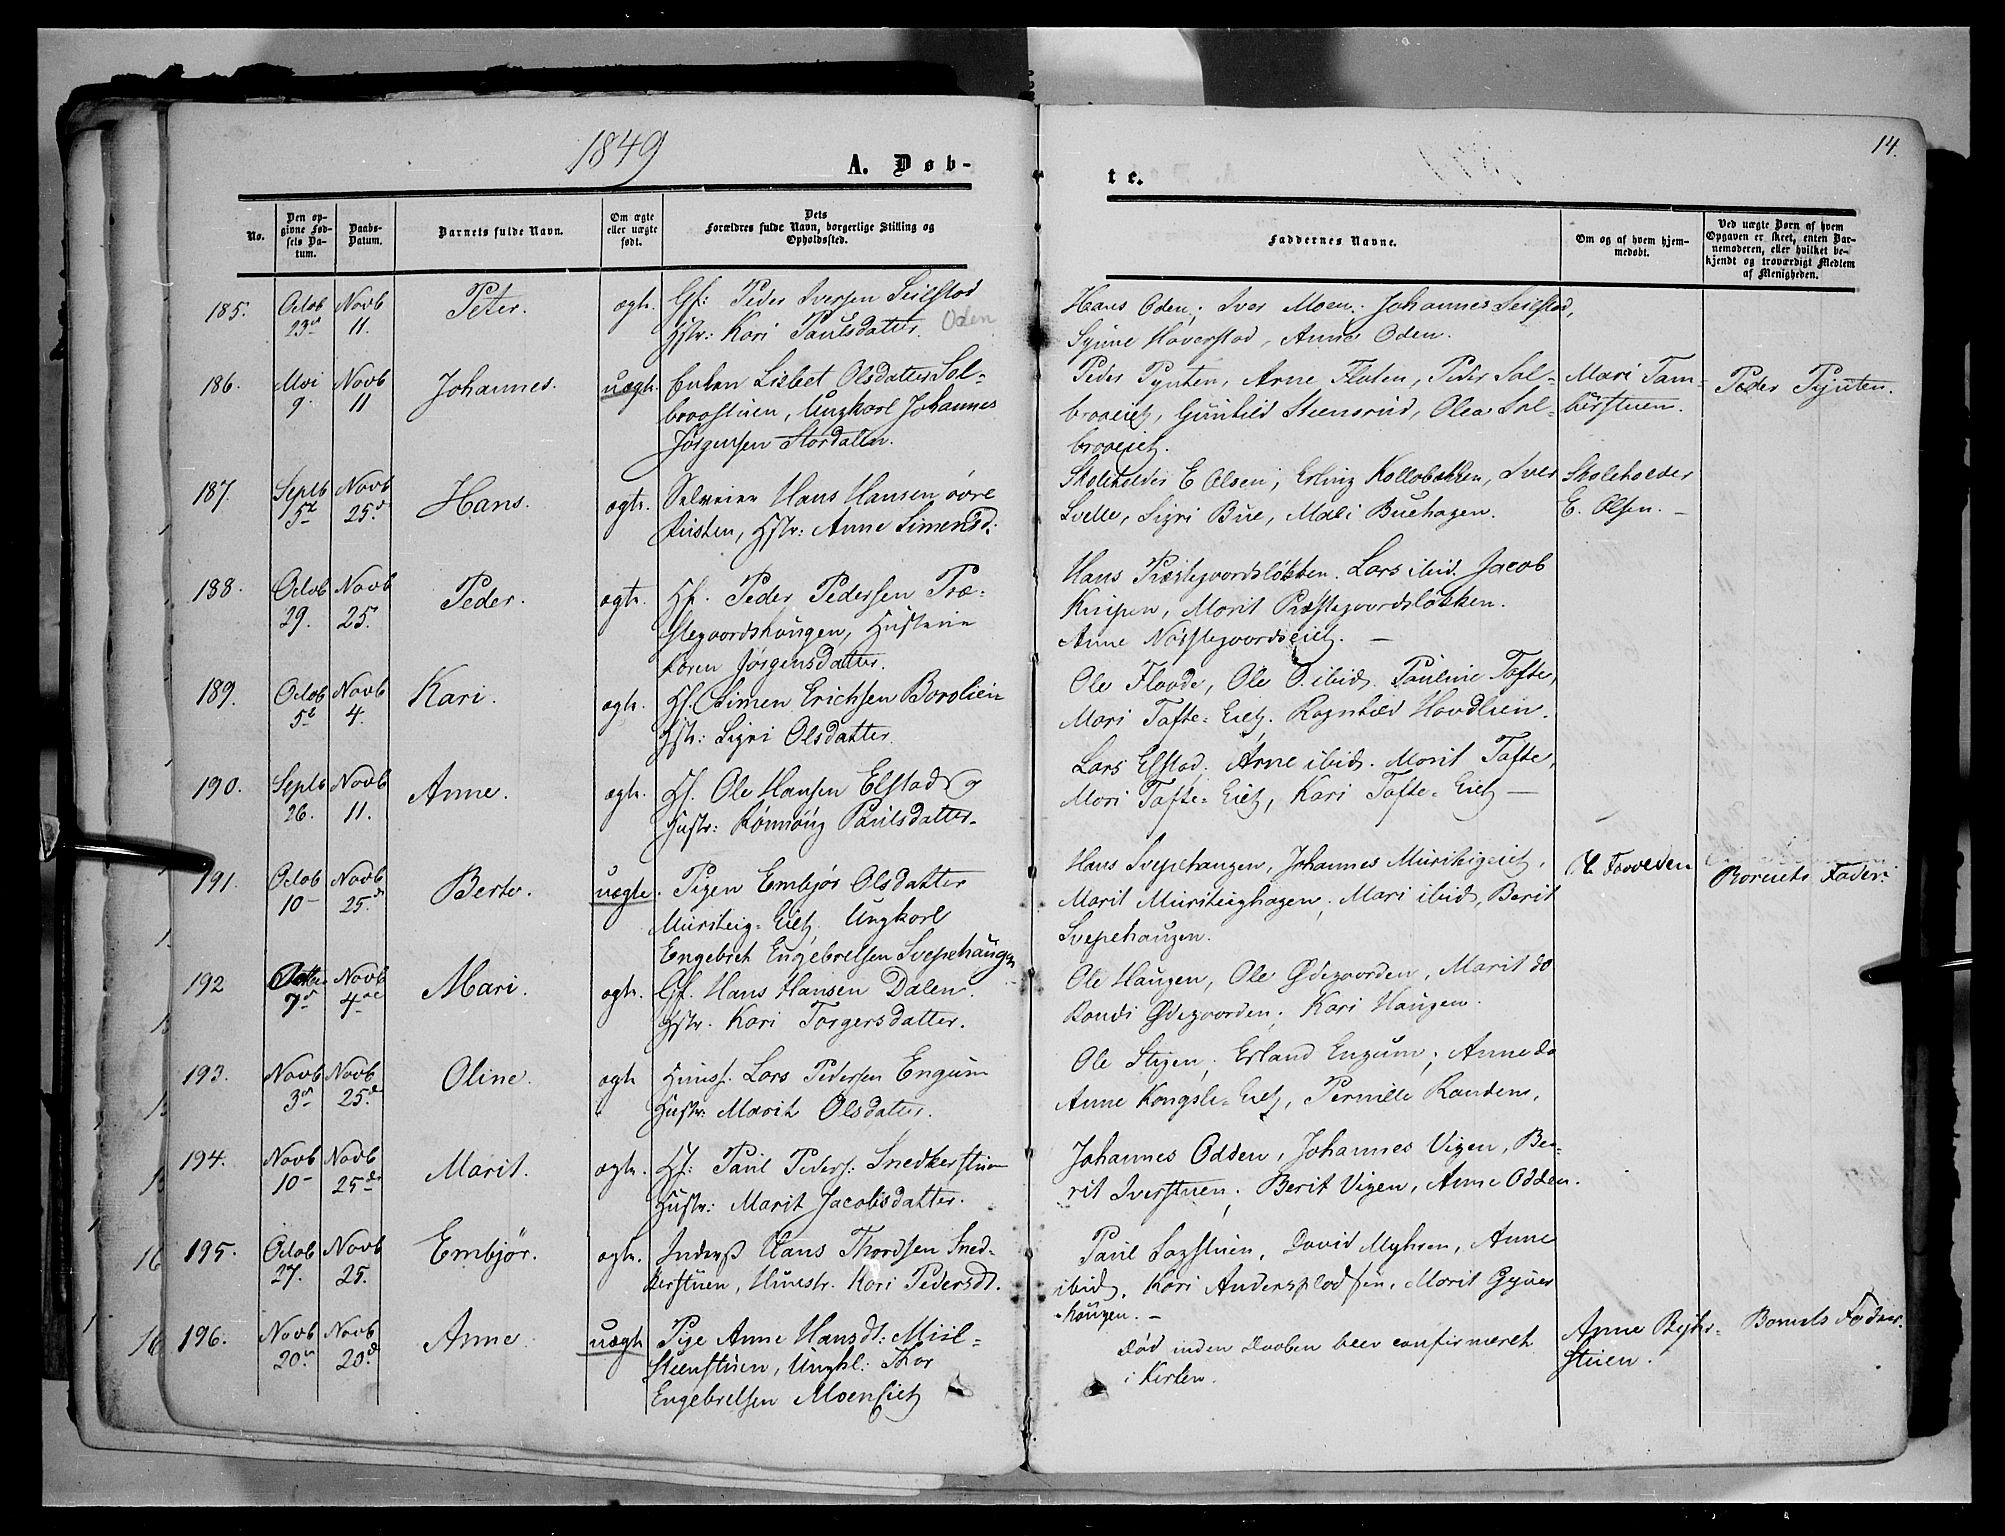 1849
A. Døb-
te.
14.
No.
Den op-
givne Fød-
sels Da-
tum.
Daabs-
Datum.
Barnets fulde Navn.
Om ægte
eller uægte
født.
Dets
Forældres fulde Navn, borgerlige Stilling og
Opholdssted.
Faddernes Navne.
Om og af hvem hjem-
medøbt.
Ved uægte Børn af hvem
Opgaven er skeet, enten Bar-
nemoderen, eller hvilket be-
kjendt og troværdigt Medlem
af Menigheden.
185. Octob Novb Peter. ægte. Gf: Peder Iversen Seielstad
23de 11. Hstr: Kari Paulsdatter. Oden
Hans Oden, Iver Moen, Johannes Seielstad,
Synne Haverstad, Anne Oden.
186. Mai Novb Johannes. uægte Enken Lisbet Olsdatter Sol-
9. 11 braastuen, Ungkarl Johannes
Jørgensen Stordalen.
Peder Pynten, Arne Floten, Peder Sol- Mari Tam- Peder Pynten.
braaeiet, Gunhild Steensrud, Olea Sol- berstuen.
braaeiet.
187. Septb Novb Hans. ægte. Selveier Hans Hansen øvre
5te 25de Kirsten, Hstr: Anne Simensd:
Skoleholder E Olsen, Erling Kollobækken, Iver Skoleholder
Svelle, Sigri Bue, Mali Buehagen. E. Olsen. -
188. Octob Novb Peder. ægte. Hf. Peder Pedersen Præ-
29. 25. stegaardshaugen, Hustrue
Karen Jørgensdatter.
Hans Præstegaardsløkken. Lars ibid. Jacob
Knipen, Marit Præstegaardsløkken.
Anne Nørstegaardseiet. -
189. Octob Novb Kari. ægte. Hf. Simen Erichsen Baroliен
5te 4. Hstr: Sigri Olsdatter.
Ole Flaade, Ole O. ibid. Pauline Tofte,
Mari Tofte-Eiet. Ragnhild Hovdlien.
190. Septb Novb Anne. ægte. Hf. Ole Hansen Elstad og
26. 11. Hustr: Rønnøug Paulsdatter.
Lars Elstad. Arne ibid. Marit Tofte,
Mari Tofte-Eiet, Kari Tofte-Eiet -
191. Octob Novb Berte. uægte. Pigen Embjør Olsdatter
10- 25de Mursteig-Eiet. Ungkarl
Engebret Engebretsen Svepehaugen
Hans Svepehaugen, Johannes Mursteigeiet, Barnets Fader.
Marit Mursteighagen, Mari ibid, Berit
Svepehaugen.
192 Octbr Novb Mari. ægte. Gf. Hans Hansen Dalen.
7de 4de Hstr. Kari Torgersdatter.
Ole Haugen, Ole Ødegaarden, Marit do
Randi Ødegaarden, Kari Haugen.
193. Novb Novb Oline. ægte Huusf. Lars Pedersen Engum
3de 25de Hustr. Marit Olsdatter.
Ole Stigen, Erland Engum, Anne do
Anne Kongsli-Eiet, Pernille Randen.
194. Novb Novb Marit. ægte. Hf: Paul Peders: Snedkerstuen
10- 25de Hustr: Marit Jacobsdatter.
Johannes Odden, Johannes Vigen, Be-
rit Iverstuen, Berit Vigen, Anne Odden.
195. Octob Novb Embjør. ægte. Inderst Hans Thordsen Sned-
27. 25. kerstuen, Huustr. Kari Pedersdt.
Paul Sagstuen, David Myhren, Anne
ibid, Kari Andersplads, Marit
-haugen. -
196. Novb Novb Anne. uægte Pige Anne Hansdt. Miil-
20de 20de steenstuen, Ungkl: Thor
Engebretsen Moenseiet
Død inden Daaben blev confirmeret Anne Barnets Fader.
i Kirken. stuen.